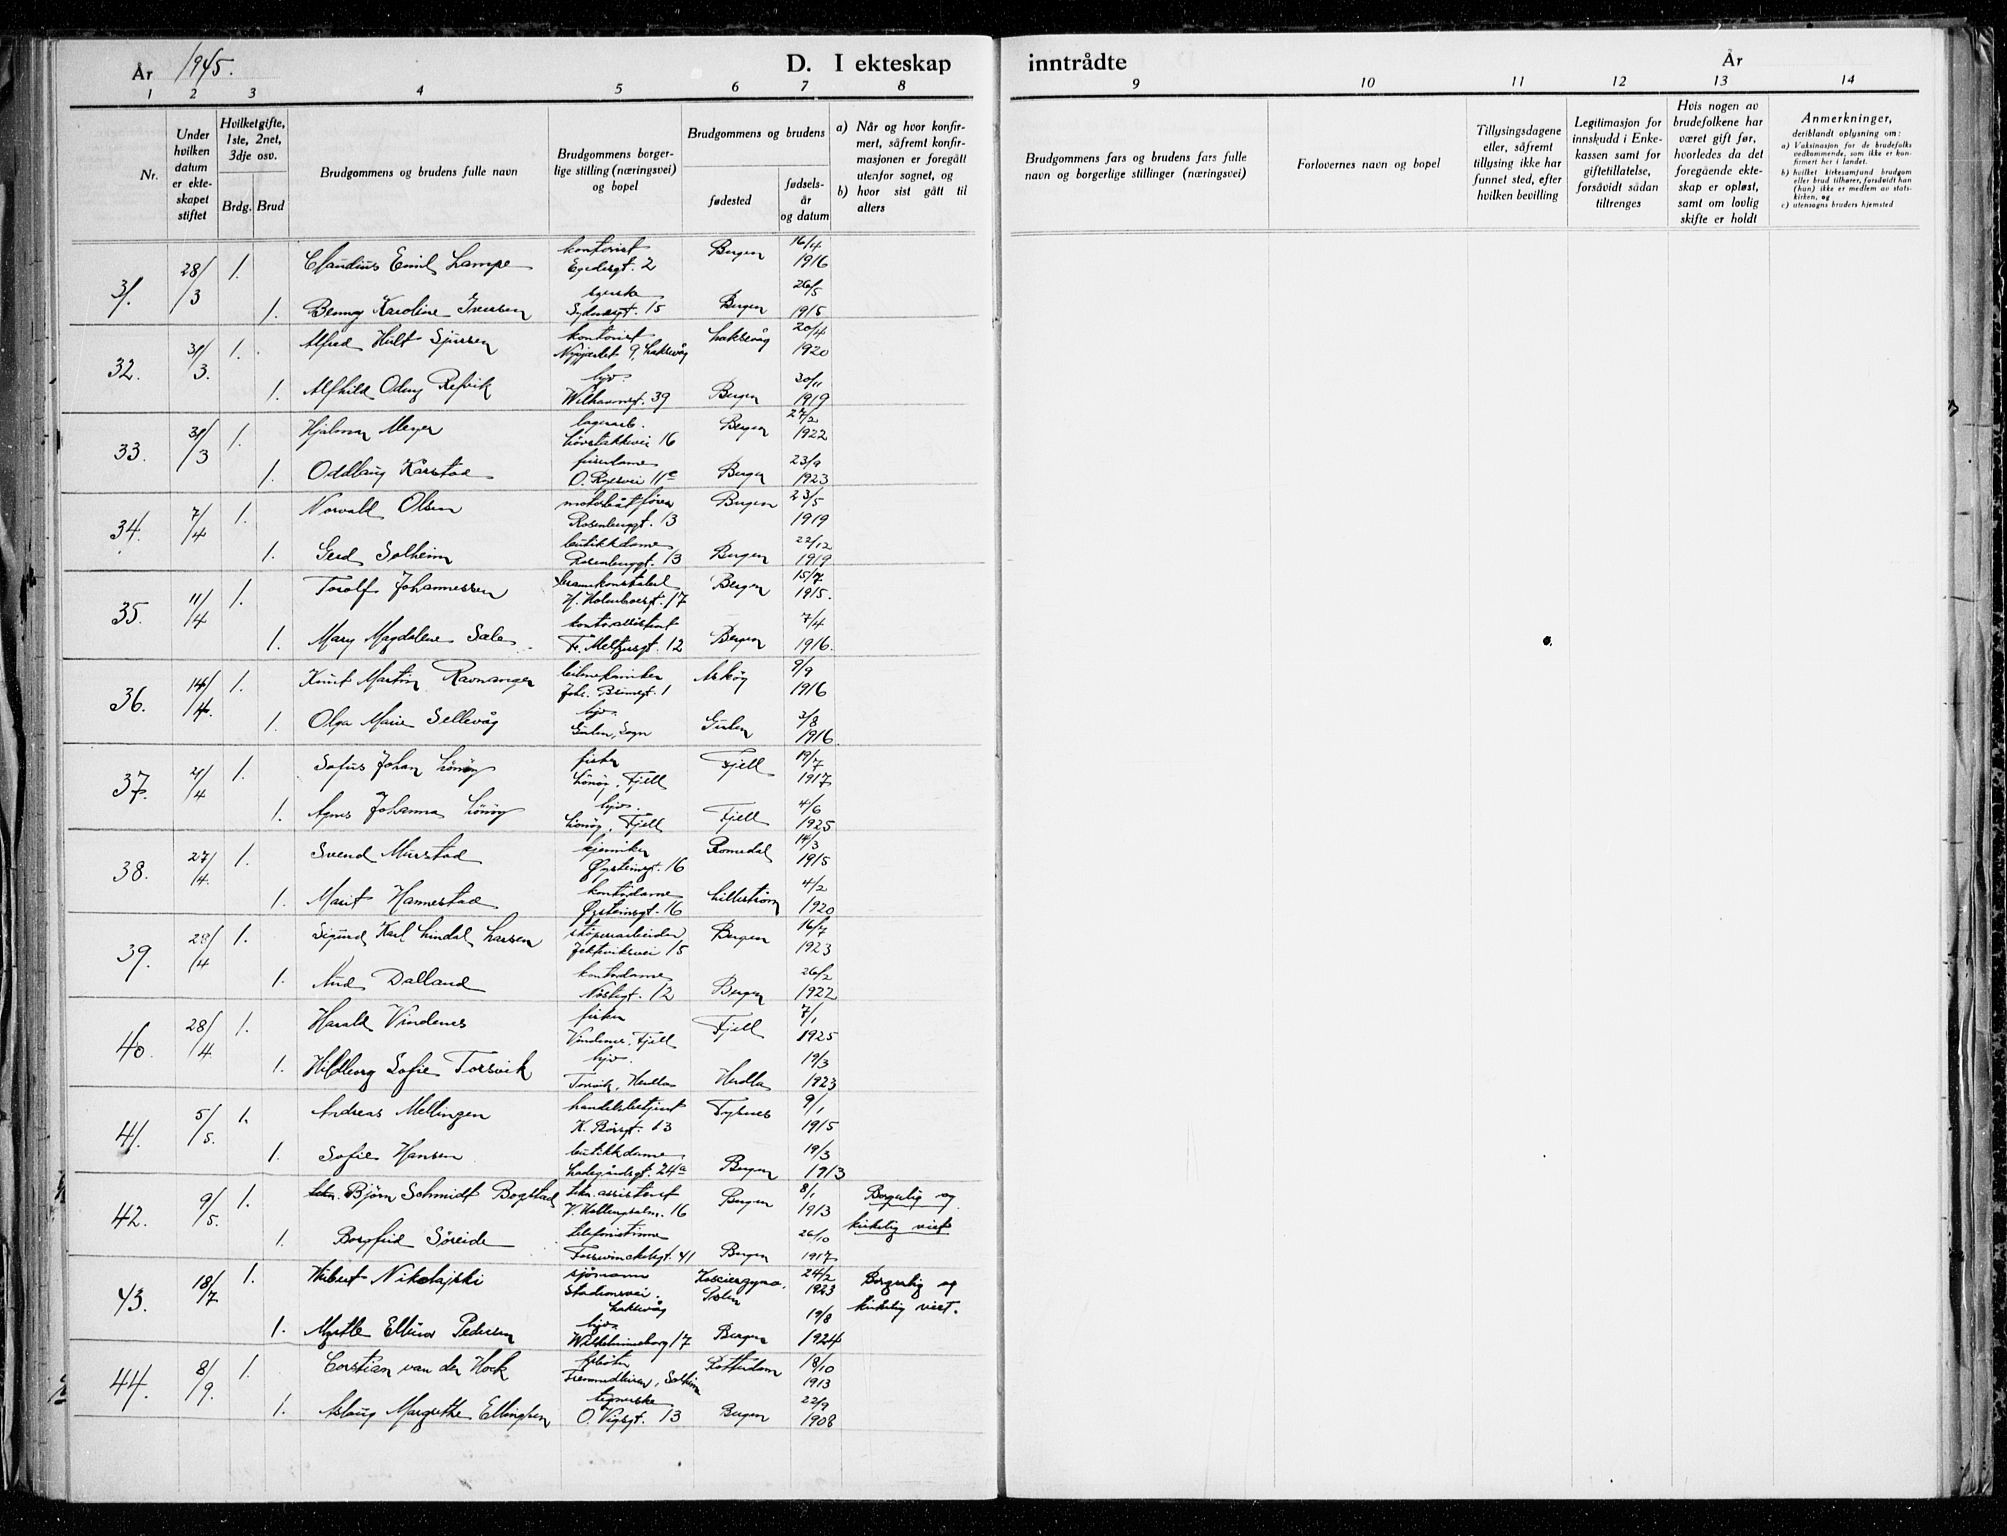 År 1945.
D. I ekteskap inntrådte
År
1 2 3 4 5 6 7 8 9 10 11 12 13 14
Nr.
Under hvilken datum er ekteskapet stiftet
Hvilket gifte, 1ste, 2net, 3dje osv.
Brdg. Brud
Brudgommens og brudens fulle navn
Brudgommens borgerlige stilling (næringsvei) og bopel
Brudgommens og brudens
fødested
fødselsår og datum
a) Når og hvor konfirmert, såfremt konfirmasjonen er foregått utenfor sognet, og
b) hvor sist gått til alters
Brudgommens fars og brudens fars fulle navn og borgerlige stillinger (næringsvei)
Forlovernes navn og bopel
Tillysingsdagene eller, såfremt tillysing ikke har funnet sted, efter hvilken bevilling
Legitimasjon for innskudd i Enkekassen samt for giftetillatelse, forsåvidt sådan tiltrenges
Hvis nogen av brudefolkene har været gift før, hvorledes da det foregående ekteskap er opløst, samt om lovlig skifte er holdt
Anmerkninger,
deriblandt oplysning om:
a) Vaksinasjon for de brudefolks vedkommende, som ikke er konfirmert her i landet.
b) hvilket kirkesamfund brudgom eller brud tilhører, forsåvidt han (hun) ikke er medlem av statskirken, og
c) utensogns bruders hjemsted
31. 28/3 1. Claudius Emil Lampe kontorist Bergen 16/4 1916
gt. 2
1. Benny Karoline Iversen syerske Bergen 26/5 1915
gt. 15
32. 31/3. 1. Alfred Hult Sjursen kontorist Laksevåg 20/4 1920
9, Laksevåg
1. Alfhild Odny Refvik hjv. Bergen 30/11 1919
gt. 39
33. 31/3 1. Hjalmar Meyer lagerarb. Bergen 27/2 1922
Løvstakkvei 16
1. Oddlaug Kårstad Bergen 23/9 1923
O. Ryesvei 11c
34. 7/4 1. Norvald Olsen motorbåtfører Bergen 23/5 1919
Rosenberggt. 13
1. Gerd Solheim butikkdame Bergen 22/12 1919
Rosenberggt. 13
35. 11/4 1. Torolf Johannessen brannkonstabel Bergen 15/7 1915.
H. Holmboesgt. 17
1. Mary Magdalene Sæle kontorassistent Bergen 7/4 1916.
Fr. Meltzersgt. 12
36. 14/4. 1. Knut Martin Ravnanger bilmekaniker Askøy 9/9 1916
gt. 1
1. Olga Marie Sellevåg hjv. Gulen 3/8 1916.
Gulen, Sogn
37. 21/4 1. Sofus Johan Lönöy fisker Fjell 19/7 1917
Lönöy, Fjell
1. Agnes Johanna Lönöy hjv. Fjell 4/6 1925
Lönöy, Fjell
38. 27/4. 1. Svend Murstad kjemiker Romedal 14/3 1915
Øysteinsgt. 16
1. Marit Hannestad kontordame Lilleström 4/2 1920
Øysteinsgt. 16
39. 28/4 1. Sigurd Karl Lindal Larsen støperiarbeider Bergen 16/7 1923
Jekteviksvei 15
1. Aud Dalland kontordame Bergen 26/2 1922
Nøstegt. 12
40. 28/4 1. Harald Vindenes fisker Fjell 7/1 1925
Vindenes, Fjell
1. Hildborg Sofie Torsvik hjv. Herdla 19/3 1923
Torsvik, Herdla
41. 5/5. 1. Andreas Mellingen handelsbetjent Tysnes 9/1 1915
gt. 13
1. Sofie Hansen butikkdame Bergen 19/3 1913
Ladegårdsgt. 24a
42. 9/5. 1. Björn Schmidt Bogstad tekn. assistent Bergen 8/1 1913 Borgerlig og
V. Hellengsalm. 16 kirkelig viet
1. Borgfrid Søreide telefonistinne Bergen 26/10 1917
gt. 41
43. 18/7 1. Hubert Nikolajski sjömann 24/2 1923 Borgerlig og
Stadionsvei, Polen kirkelig viet.
Laksevåg
1. Myrtle Ellinor Pedersen hjv. Bergen 19/8 1924
Wilhelmineborg 17
44. 8/9. 1. Corstian van der Hoek Rotterdam 18/10 1913
Solheim
1. Aslaug Margrethe Ellingsen tegnerske Bergen 22/9 1908
O. Vigsgt. 13